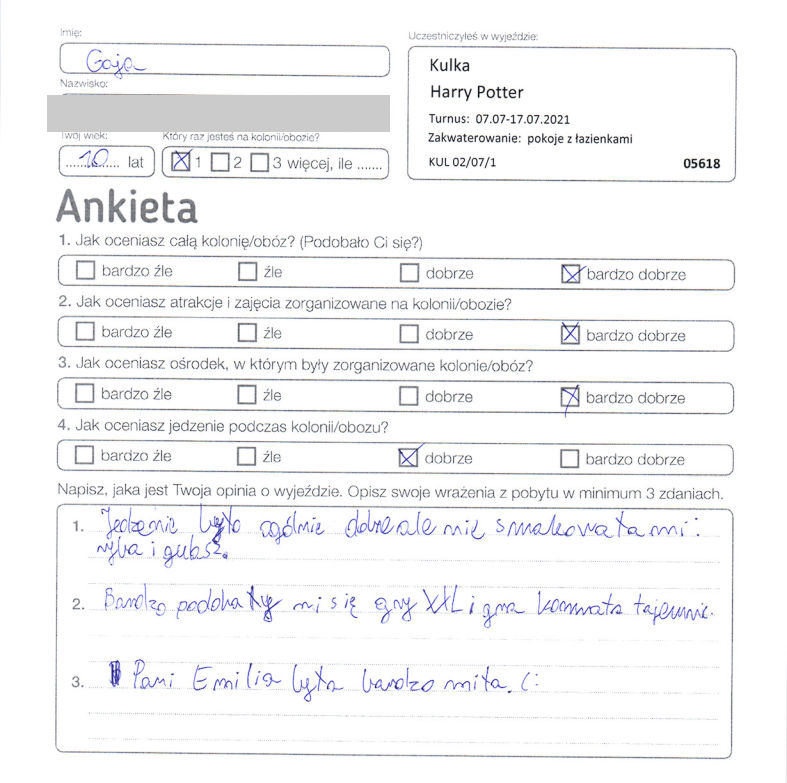 Imię:
Uczestniczyłeś w wyjeździe:
Gaja
Nazwisko:
Kulka
Harry Potter
Turnus: 07.07-17.07.2021
Zakwaterowanie: pokoje z łazienkami
KUL 02/07/1 05618
Twój wiek:
Który raz jesteś na kolonii/obozie?
......10...... lat
1 2 3 więcej, ile .......
Ankieta
1. Jak oceniasz całą kolonię/obóz? (Podobało Ci się?)
bardzo źle źle dobrze bardzo dobrze
2. Jak oceniasz atrakcje i zajęcia zorganizowane na kolonii/obozie?
bardzo źle źle dobrze bardzo dobrze
3. Jak oceniasz ośrodek, w którym były zorganizowane kolonie/obóz?
bardzo źle źle dobrze bardzo dobrze
4. Jak oceniasz jedzenie podczas kolonii/obozu?
bardzo źle źle dobrze bardzo dobrze
Napisz, jaka jest Twoja opinia o wyjeździe. Opisz swoje wrażenia z pobytu w minimum 3 zdaniach.
1. Jedzenie było ogólnie dobre ale nie smakowała mi:
ryba i gulasz.
2. Bardzo podobały mi się gry XXL i gra komnata tajemnic.
3. Pani Emilia była bardzo miła. (: